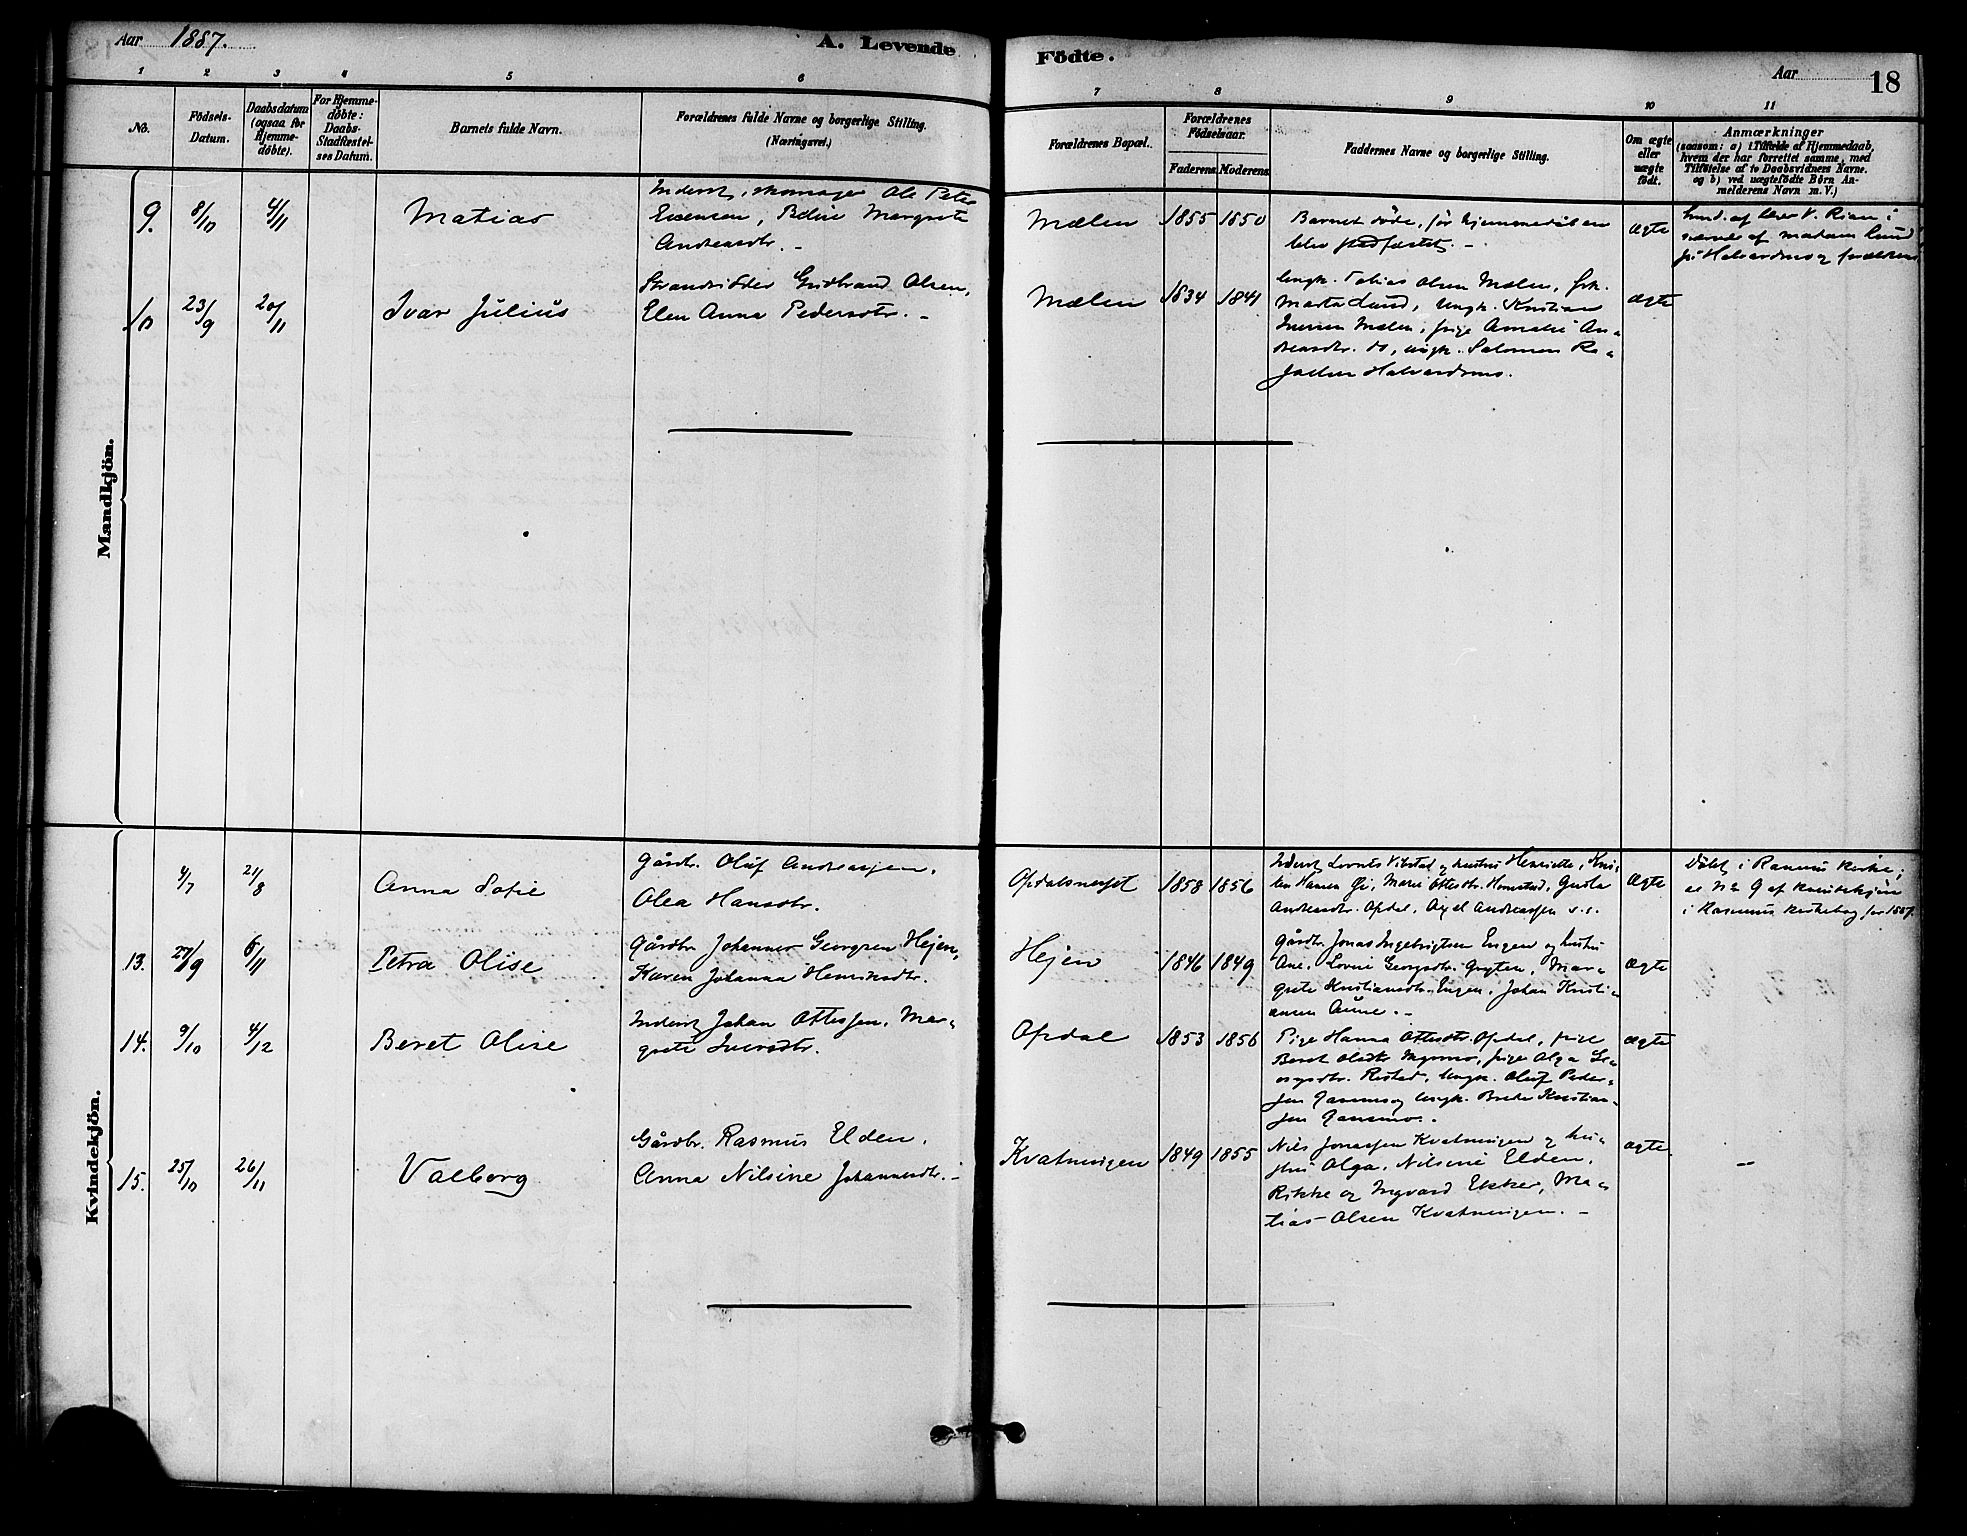 Aar 1887.
A. Levende Födte.
Aar
18
1 2 3 4 5 6 7 8 9 10 11
No.
Födsels-
Datum.
Daabsdatum
(ogsaa for
Hjemme-
döbte).
For Hjemme-
döbte:
Daabs-
Stadfæstel-
ses Datum.
Barnets fulde Navn.
Forældrenes fulde Navne og borgerlige Stilling.
(Næringsvei.)
Forældrenes Bopæl.
Forældrenes
Födselsaar.
Faderens. Moderens.
Faddernes Navne og borgerlige Stilling.
Om ægte
eller
uægte
födt.
Anmærkninger
(saasom: a) i Tilfælde af Hjemmedaab,
hvem der har forrettet samme, med
Tilföielse af to Daabsvidners Navne.
og b) ved uægtefödte Börn An-
melderens Navn m. V.)
Mandkjön.
9. 8/10 4/11 Matias
Inderst, skomager Ole Peter
Evensen, Beline Margrete
Andreasdtr. -
Mælen 1855 1850
Barnet døde, før hjemmedåben
blev stadfæstet. -
ægte
af V. Rian i
nærvær af madam Lund
på Halvardmo og forældrene
10 23/9 20/11 Ivar Julius
Strandsidder Gudbrand Olsen,
Elen Anna Pedersdtr. -
Mælen 1834 1841
Ungk. Tobias Olsen Mælen, frk.
Marta Lund, Ungk. Kristian
Iversen Mælen, pige Amalie An-
dreasdtr. do, ungk. Salomon
Halvardmo.
ægte
Kvindekjön.
4/7 21/8 Anna Sofie
Gårdbr. Oluf Andreassen,
Olea Hansdtr.
Opdalsneset 1858 1856
Inderst Vibstad og hustru Henriette,
Hansen Øi, Marie Ottesdtr. Homstad, Gusta
Andreasdtr. Opdal, Axel Andreassen s.s.
Ægte
Døbt i Ranems kirke;
se no 9 af kvindekjøn
i Ranems kirkebog for 1887.
13. 27/9 6/11 Petra Olise
Gårdbr. Johannes Georgsen Hejen,
Karen Johanna Henriksdtr.
Hejen 1846 1849
Gårdbr. Jonas Ingebrigtsen Engen og hustru
Ane, Lovise Georgsdtr. Mar-
grete Kristiansdtr. Engen, Johan Kristi-
ansen Aune. -
Ægte
14. 9/10 4/12 Beret Olise
Inderst Johan Ottessen, Mar-
grete Iversdtr.
Opdal 1853 1856
Pige Hanna Ottesdtr. Opdal, pige
Beret Olsdtr. Mysmo, pige Olga Ge-
orgsdtr. Restad, Ungk. Oluf Peder-
sen og Ungk. Kristian-
sen
ægte
15. 25/10 26/11 Valborg
Gårdbr. Rasmus Elden,
Anna Nilsine Johannesdtr. -
Kvatningen 1849 1855
Nils Jonassen Kvatningen og hu-
stru Olga, Nilsine Elden,
Rikke og Ingvard Ekker, Ma-
tias Olsen Kvatningen. -
ægte. -